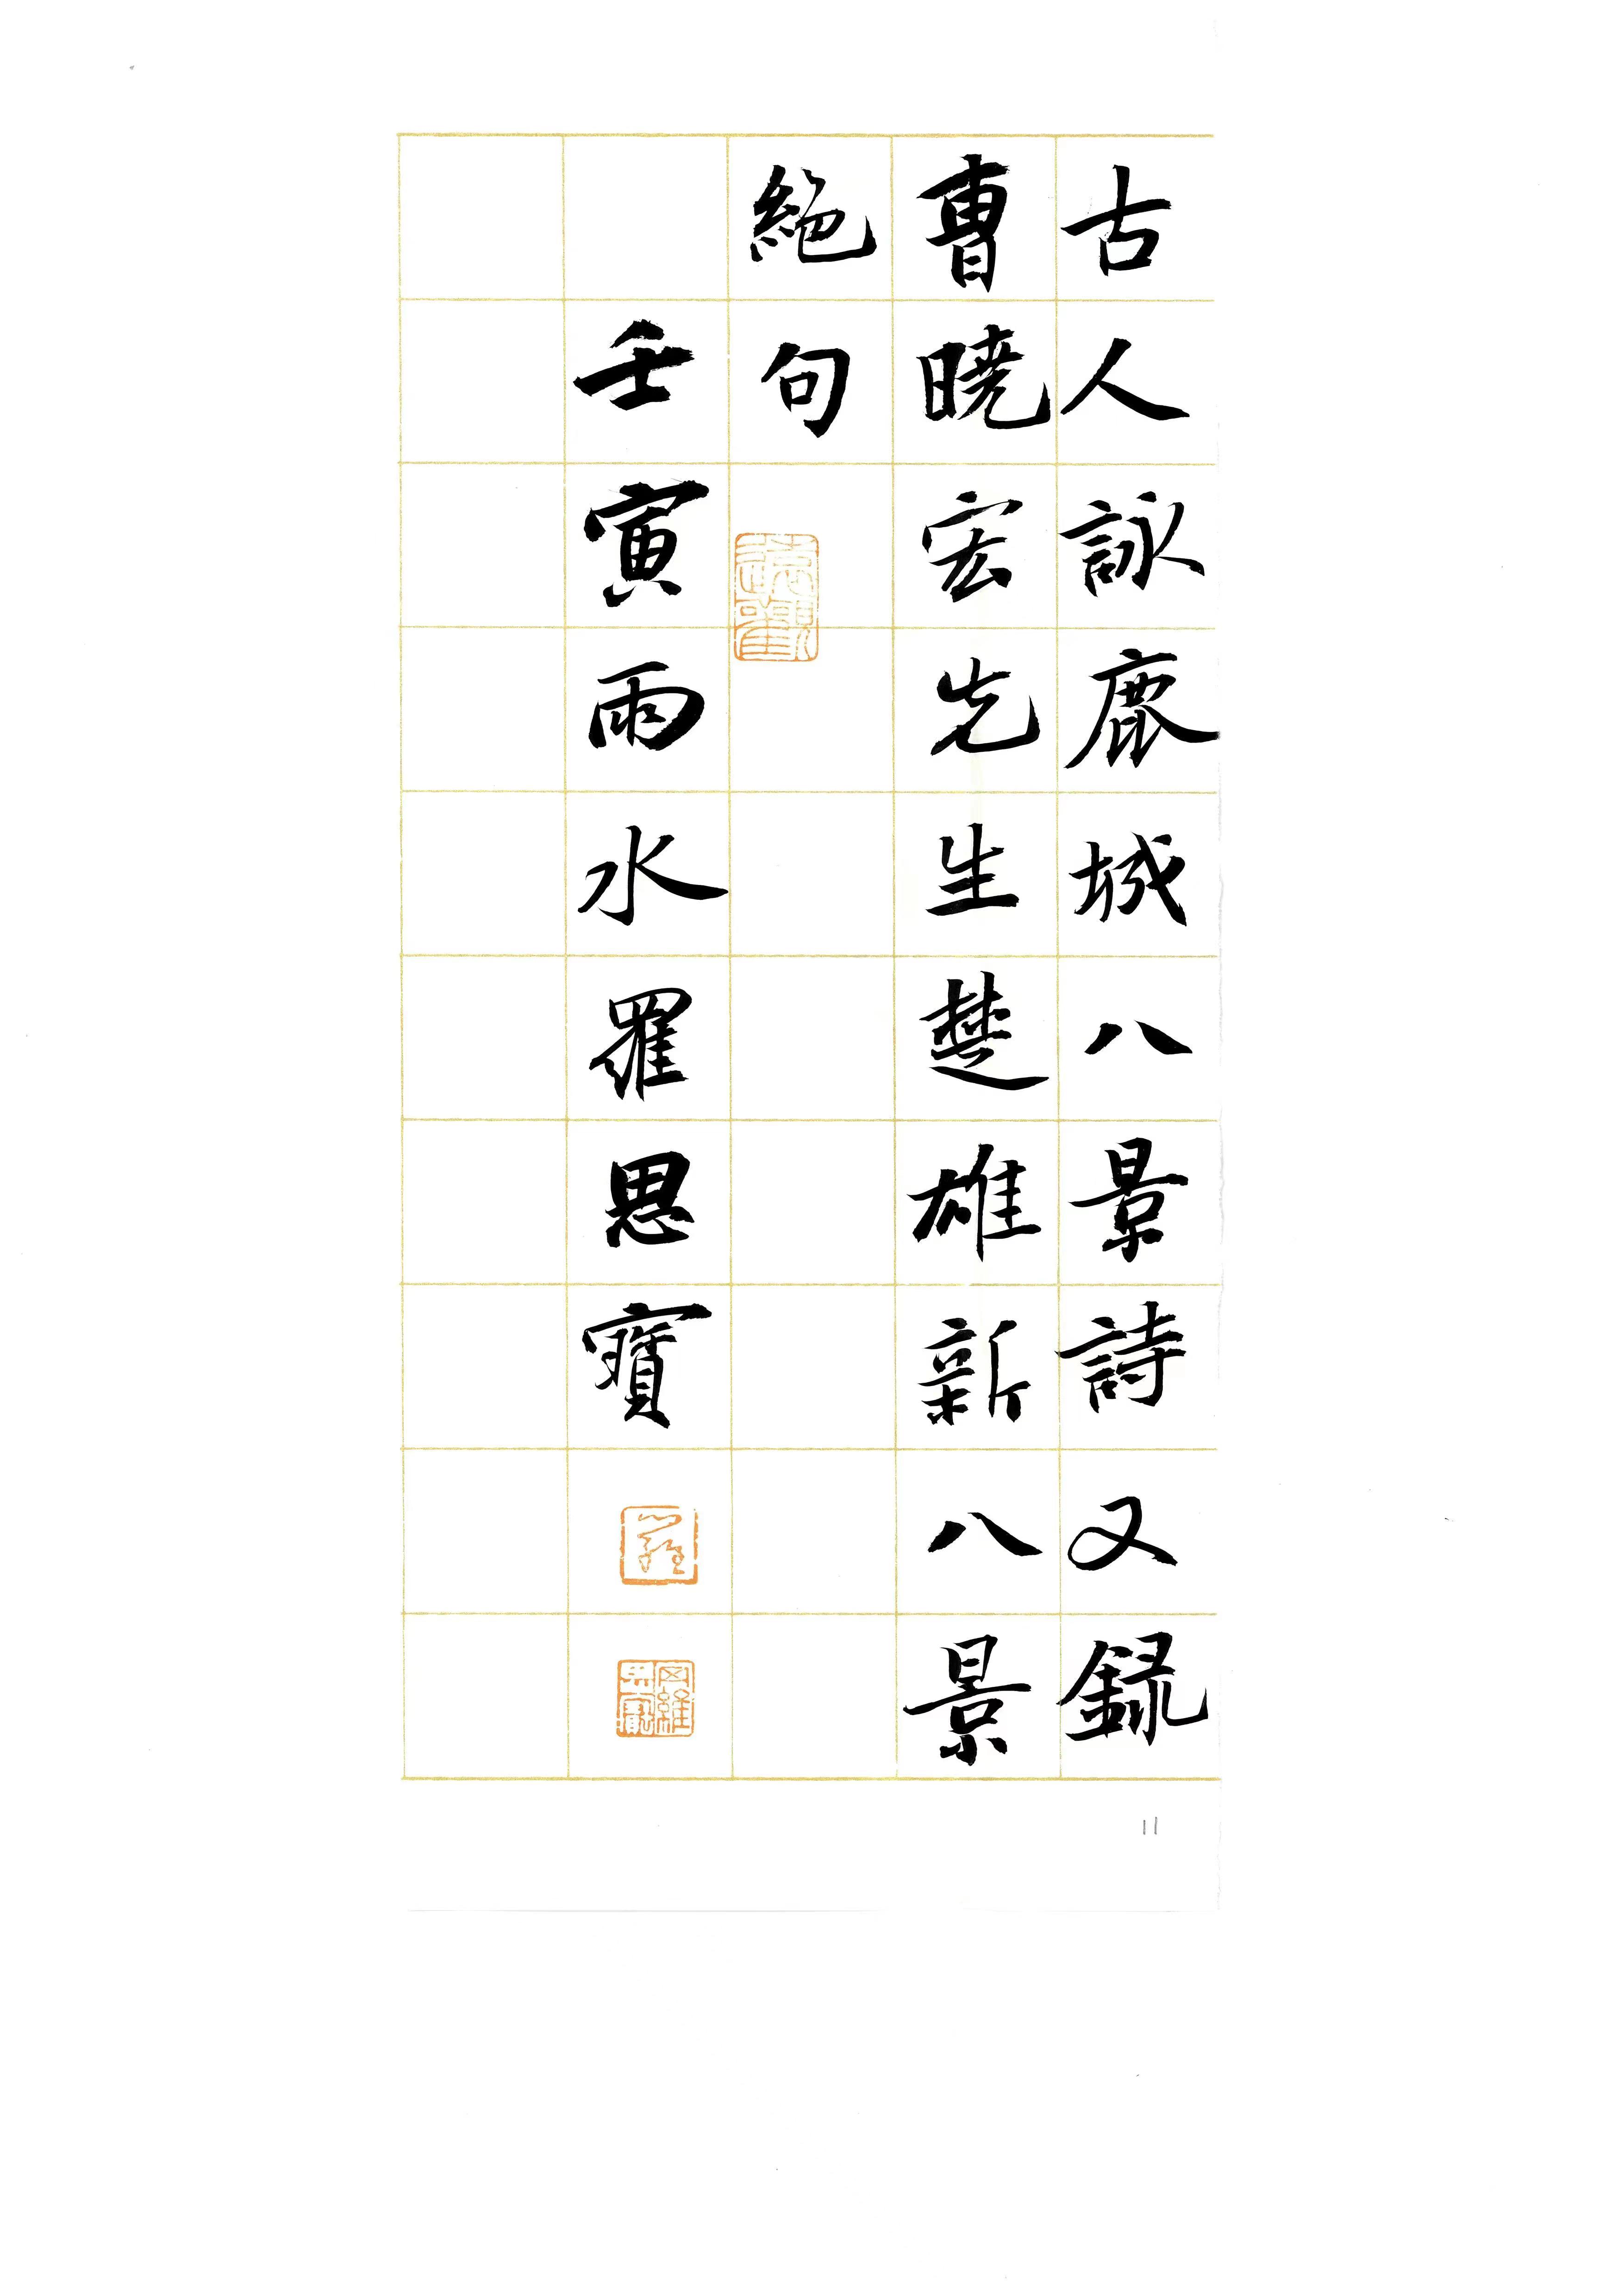 古人詠鹿城八景詩又録
曹曉宏先生楚雄新八景
絕句
壬寅雨水羅思寶
11